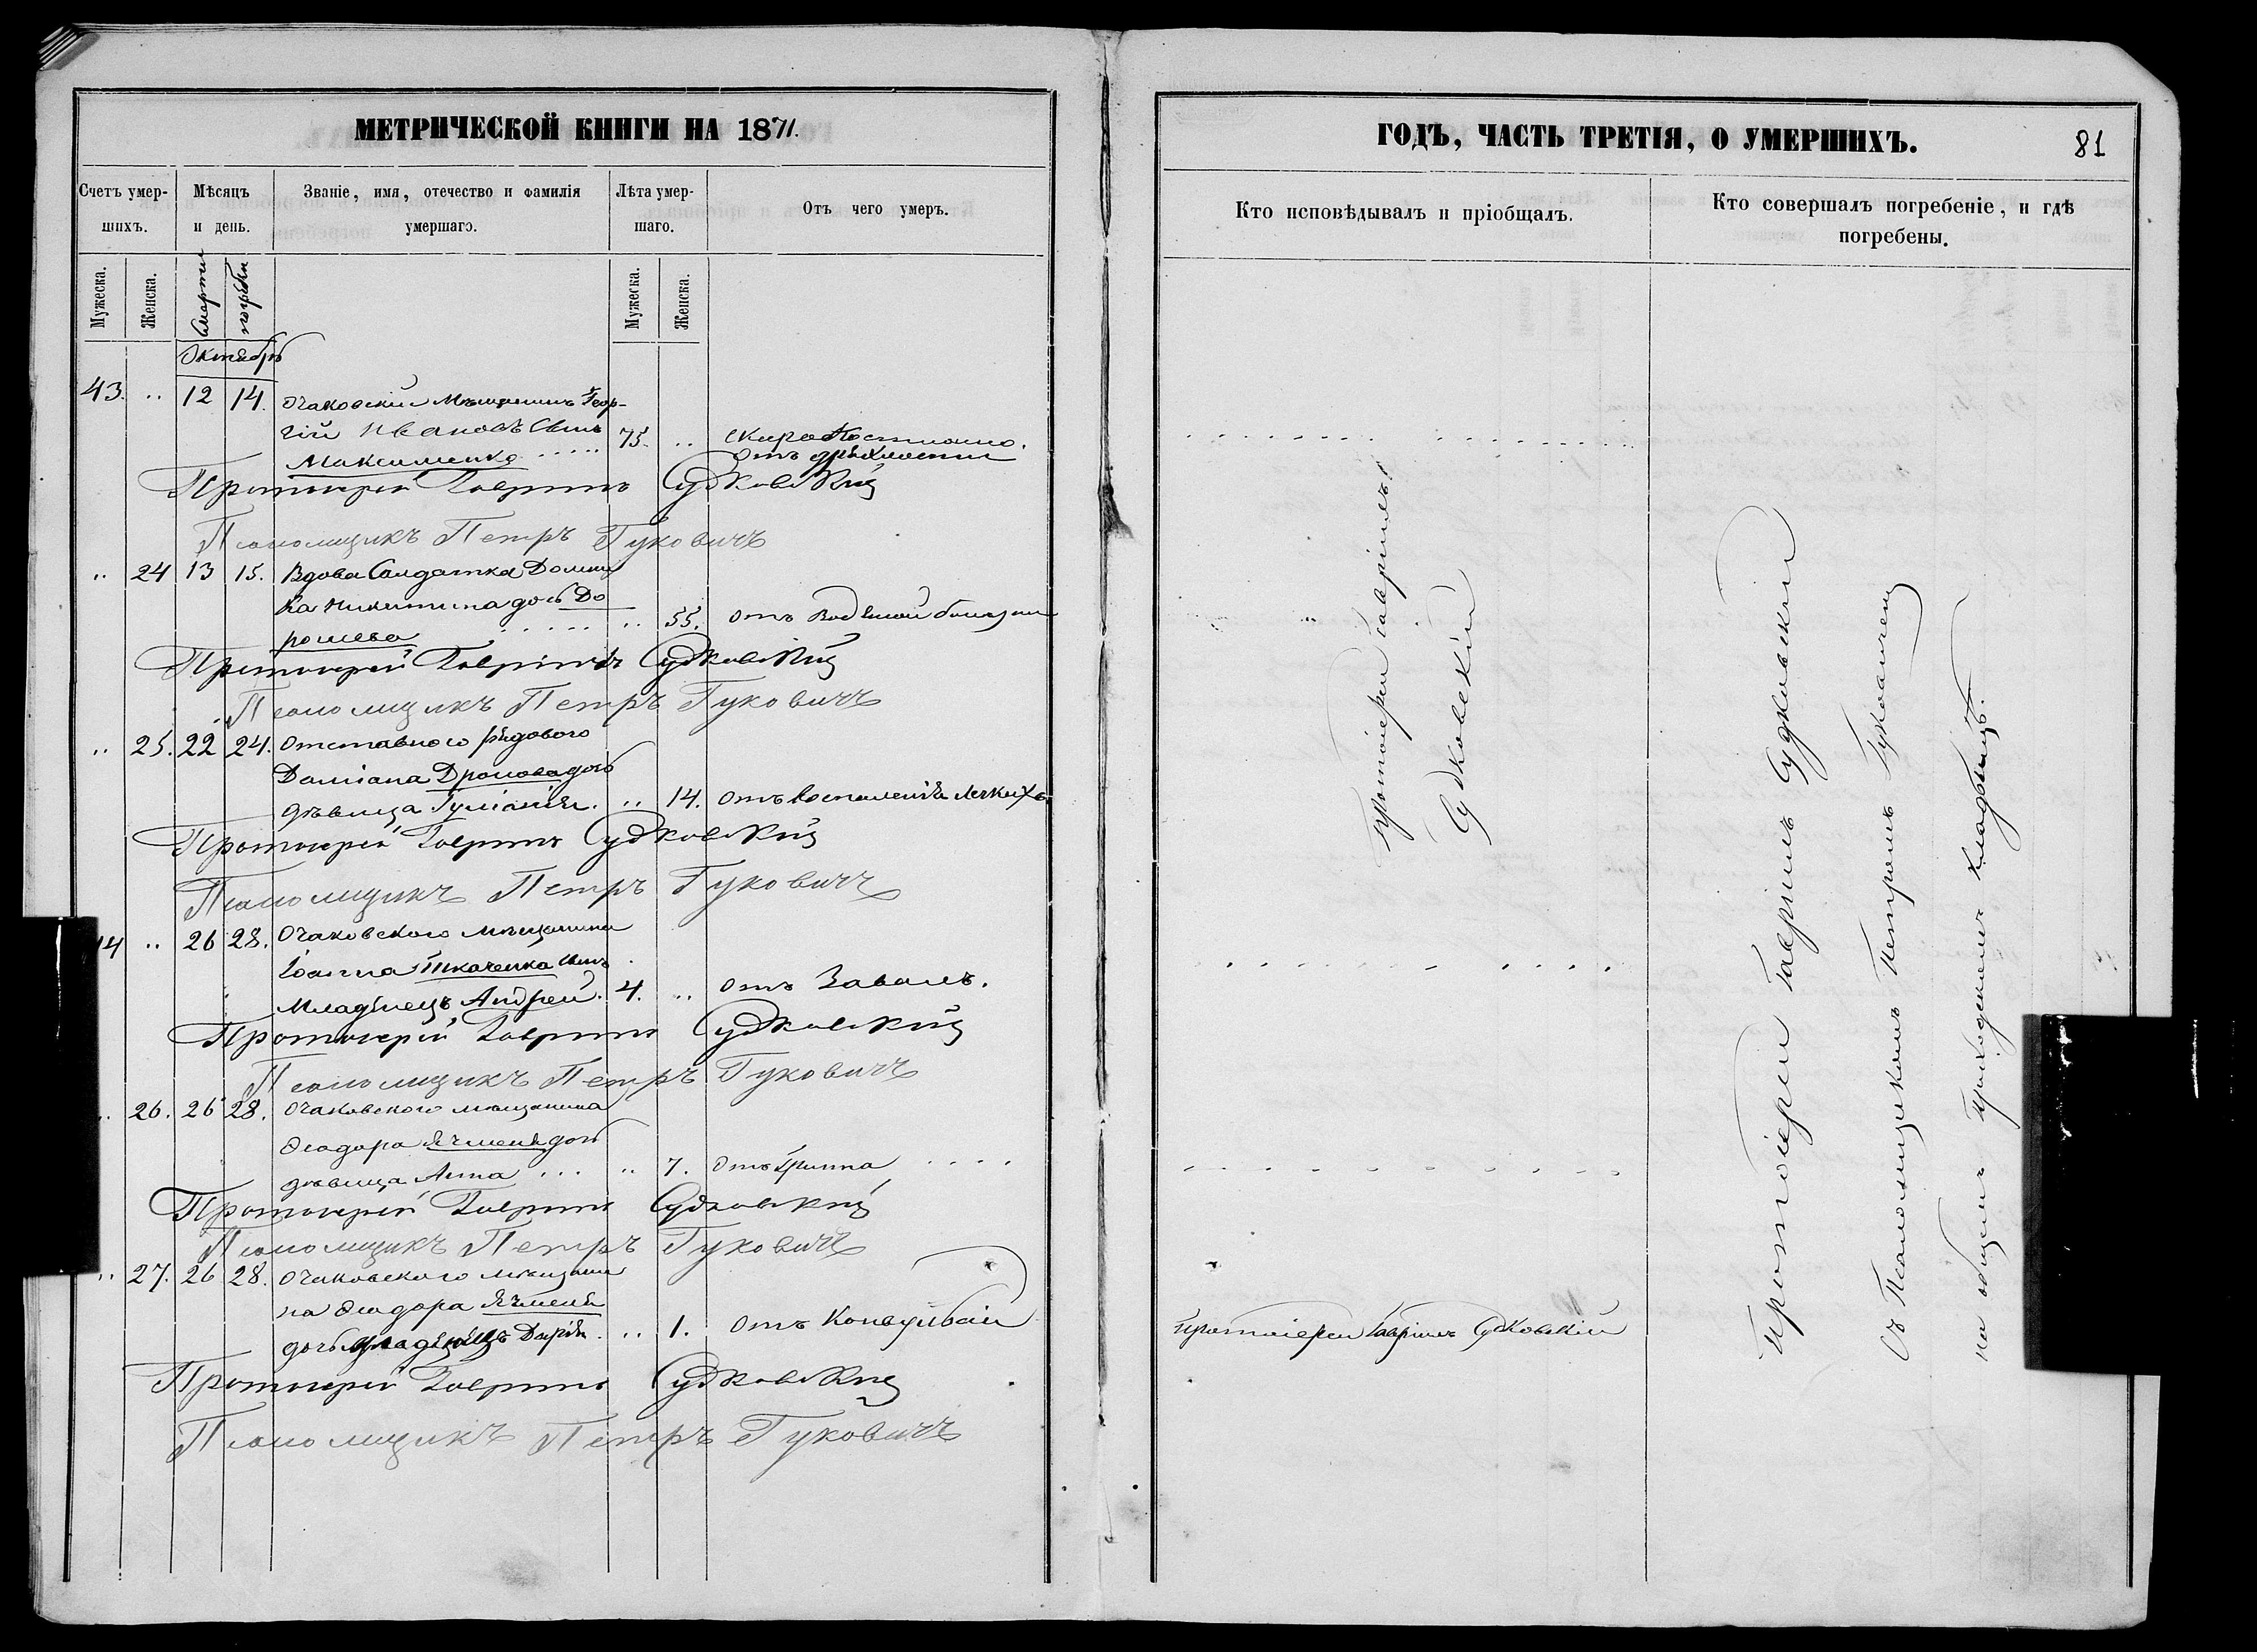 МЕТРИЧЕСКОЙ КНИГИ НА 1871.
Счетъ умер-
шихъ.
Мѣсяцъ
и день.
Званіе, имя, отечество и фамилія
умершаго.
Лѣта умер-
шаго.
Отъ чего умеръ.
Мужеска.
Женска.
Смерти
погребен
Мужеска.
Женска.
Октябрь
43. .. 12 14. Очаковскій Мѣщанинъ Геор-
гій Ивановъ Сынъ 75. .. Скоропостижно.
Максименко отъ дряхлости
Протоіерей Гавріилъ Судковскій
Псаломщикъ Петръ Гуковичъ
.. 24 13 15. Вдова Солдатка Домни
ка Никитина дочь До
рошева .. 55. отъ Водяной болезни
Протоіерей Гавріилъ Судковскій
Псаломщикъ Петръ Гуковичъ
.. 25. 22 24. Отставного рядового
Даміана Дронова дочь
дѣвица Іуліанія. .. 14. отъ Воспаленія легкихъ
Протоіерей Гавріилъ Судковскій
Псаломщикъ Петръ Гуковичъ
14 .. 26 28. Очаковского мѣщанина
Іоанна Ткаченка сынъ
Младенецъ Андрей. 4. .. отъ Завалъ.
Протоіерей Гавріилъ Судковскій
Псаломщикъ Петръ Гуковичъ
.. 26. 26 28. Очаковского мѣщанина
Ѳеодора Ячменя дочь
дѣвица Анна .. 7. отъ Гриппа
Протоіерей Гавріилъ Судковскій
Псаломщикъ Петръ Гуковичъ
.. 27. 26 28. Очаковского мѣщани
на Ѳеодора Ячменя
дочь младенецъ Дарія. .. 1. отъ Конвульсій
Протоіерей Гавріилъ Судковскій
Псаломщикъ Петръ Гуковичъ
ГОДЪ, ЧАСТЬ ТРЕТІЯ, О УМЕРШИХЪ.
81
Кто исповѣдывалъ и пріобщалъ.
Кто совершалъ погребеніе, и гдѣ
погребены.
Протоіерей Гавріилъ
Судковскій
Протоіерей Гавріилъ Судковскій
Протоіерей Гавріилъ Судковскій
Съ Псаломщикомъ Петромъ Гуковичемъ
на общемъ приходскомъ кладбищѣ.